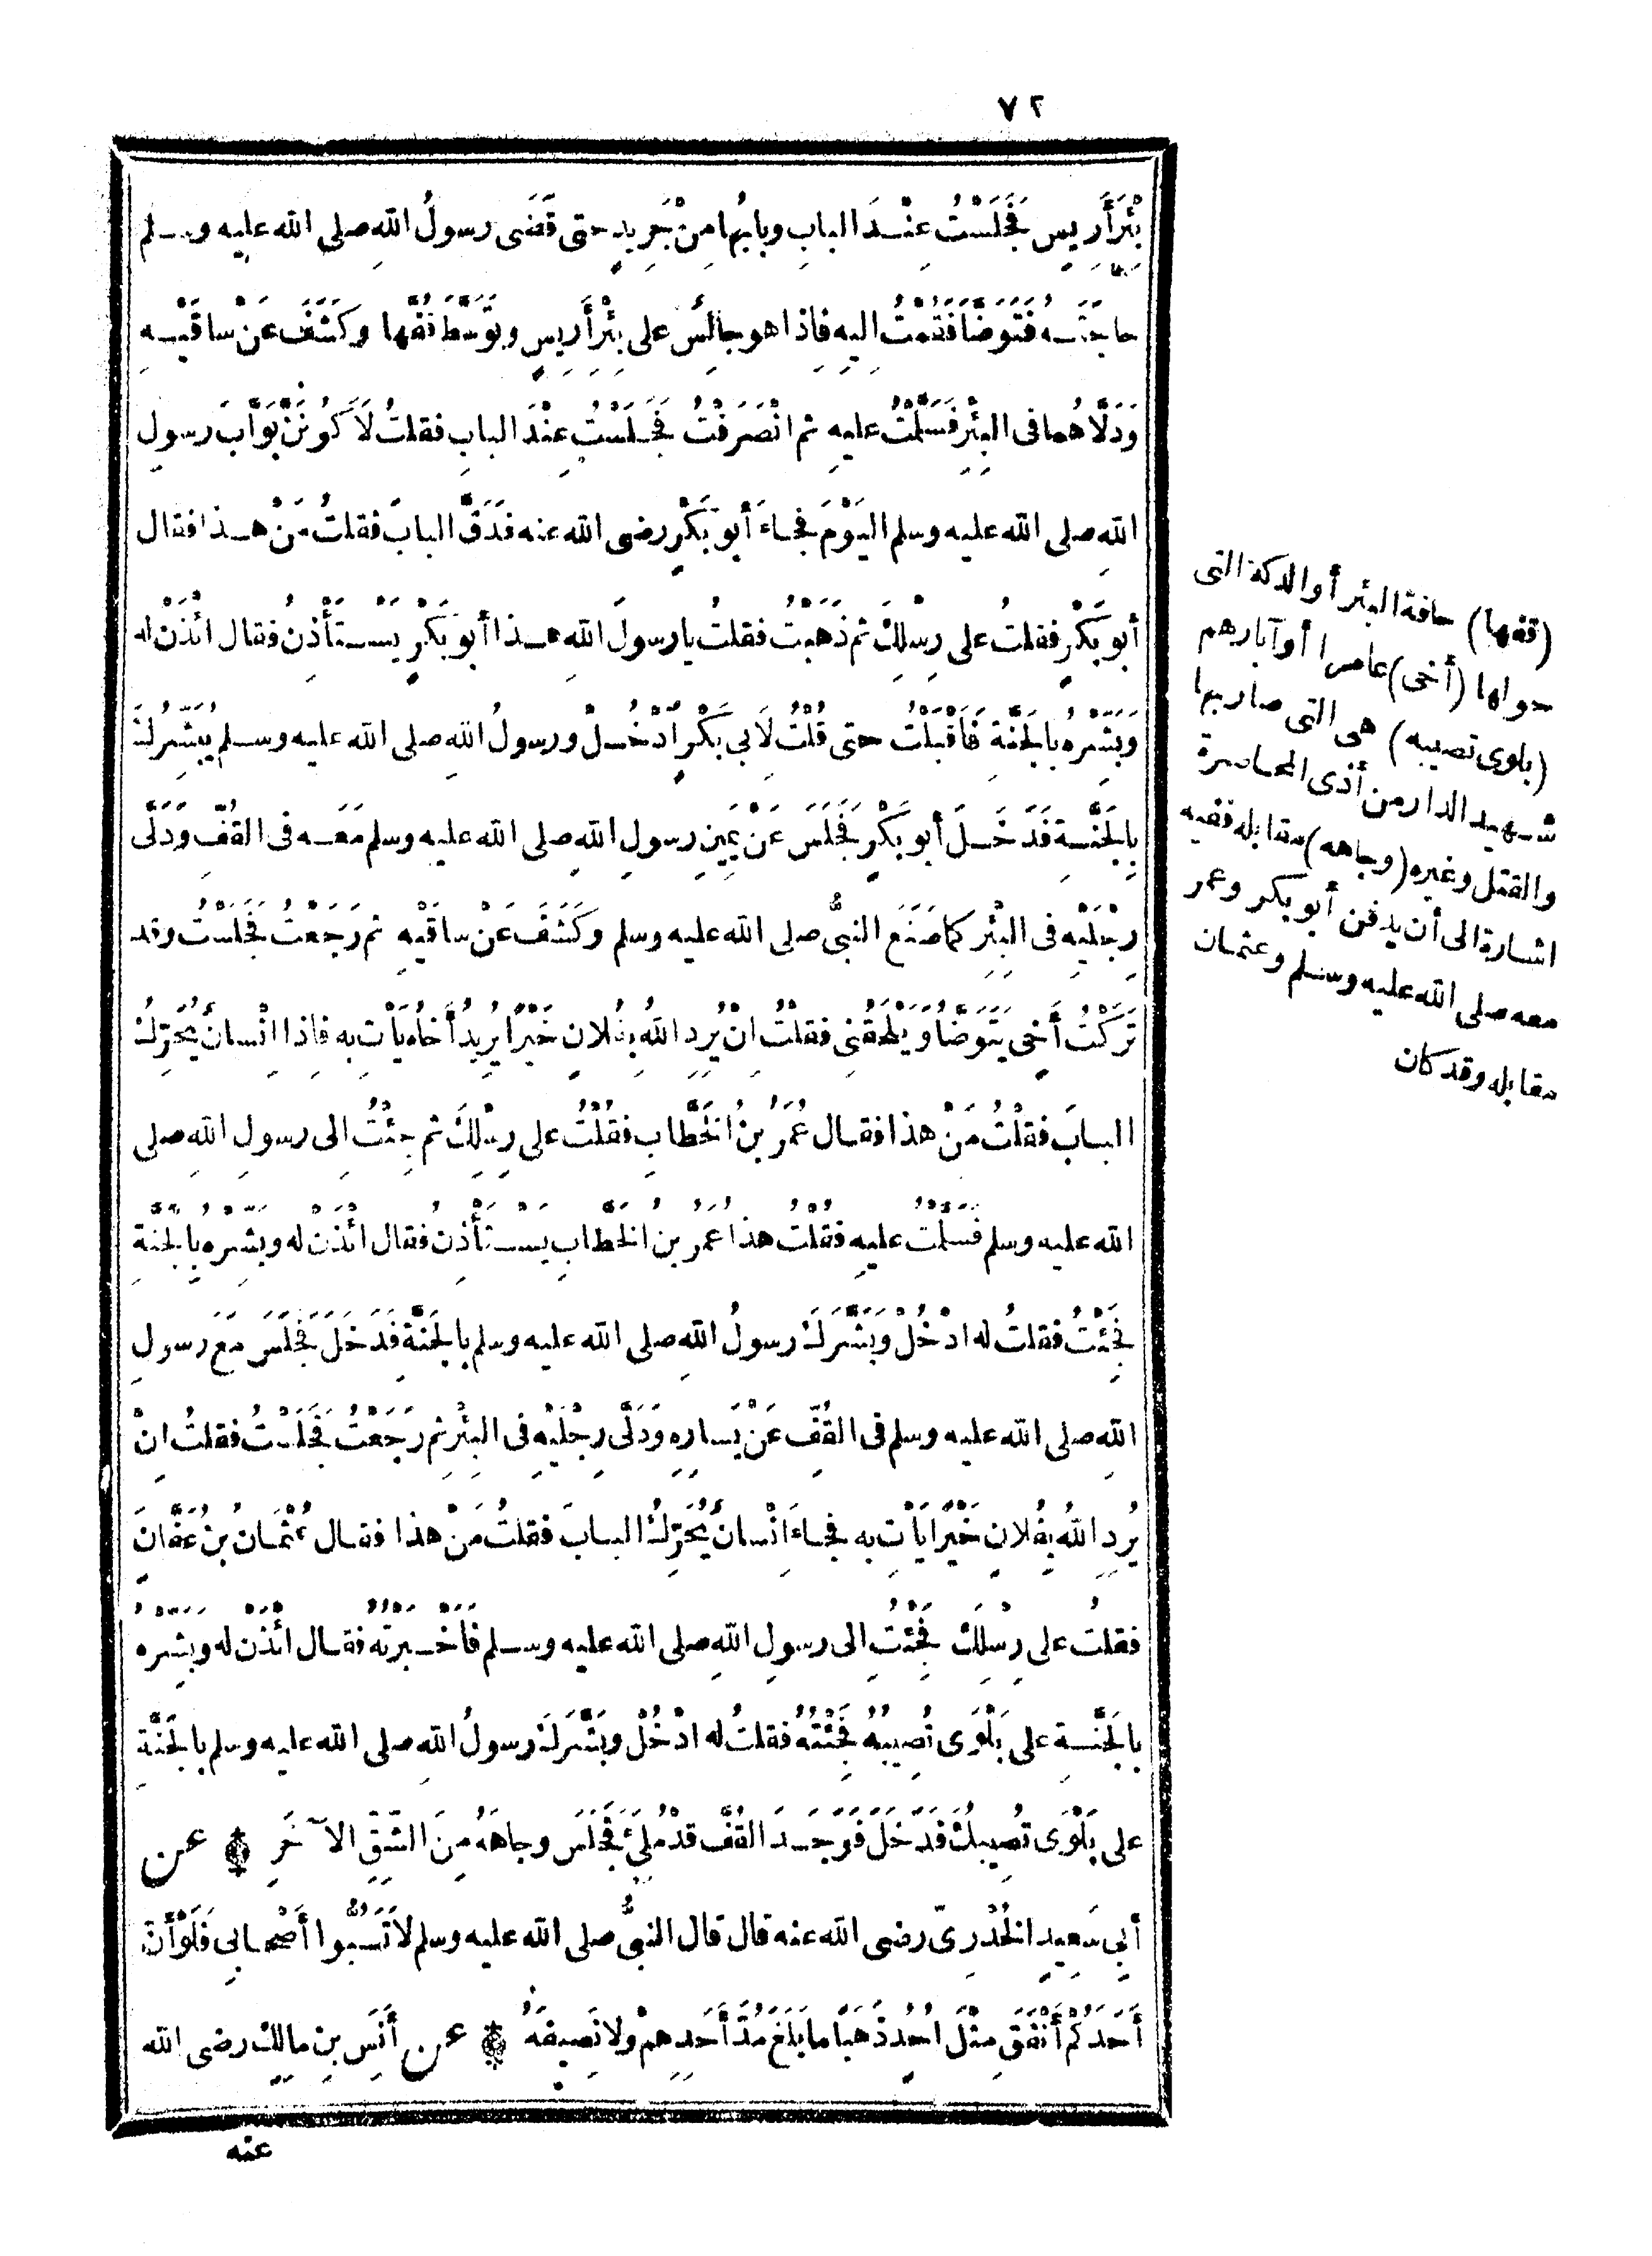 ٧٢
بِئْرَ أَرِيسٍ فَجَلَسْتُ عِنْدَ البابِ وبابُها مِنْ جَرِيدٍ حتى قَضَى رسولُ اللهِ صلى الله عليه وسلم
حاجَتَهُ فَتَوَضَّأَ فَقُمْتُ اليهِ فاذا هو جالِسٌ على بِئْرِ أَرِيسٍ وتَوَسَّطَ قُفَّها وكَشَفَ عَنْ ساقَيْهِ
وَدَلَّاهُما فى البِئْرِ فَسَلَّمْتُ عليهِ ثم انْصَرَفْتُ فَجَلَسْتُ عِنْدَ البابِ فقلتُ لَأَكُونَنَّ بَوَّابَ رسولِ
اللهِ صلى الله عليه وسلم اليَوْمَ فجاءَ أبو بَكْرٍ رضى الله عنه فدَقَّ البابَ فقلتُ مَنْ هذا فقال
أبو بَكْرٍ فقلتُ على رِسْلِكَ ثم ذَهَبْتُ فقلتُ يا رسولَ اللهِ هذا أبو بَكْرٍ يَسْتَأْذِنُ فقال ائْذَنْ له
وبَشِّرْهُ بالجَنَّةِ فَأَقْبَلْتُ حتى قُلْتُ لِأَبى بَكْرٍ ادْخُلْ ورسولُ اللهِ صلى الله عليه وسلم يُبَشِّرُكَ
بِالجَنَّةِ فَدَخَلَ أبو بَكْرٍ فَجَلَسَ عَنْ يَمِينِ رسولِ اللهِ صلى الله عليه وسلم مَعَه فى القُفِّ وَدَلَّى
رِجْلَيْهِ فى البِئْرِ كما صَنَعَ النبىُّ صلى الله عليه وسلم وكَشَفَ عَنْ ساقَيْهِ ثم رَجَعْتُ فَجَلَسْتُ وقد
تَرَكْتُ أَخِى يَتَوَضَّأُ ويَلْحَقُنِى فقلْتُ انْ يُرِدِ اللهُ بِفُلانٍ خَيْرًا يُرِيدُ أَخاهُ يَأْتِ به فاذا انْسانٌ يُحَرِّكُ
البابَ فقلْتُ مَنْ هذا فقال عُمَرُ بنُ الخَطَّابِ فقُلْتُ على رِسْلِكَ ثم جِئْتُ الى رسولِ اللهِ صلى
الله عليه وسلم فَسَلَّمْتُ عليهِ فقُلْتُ هذا عُمَرُ بن الخَطَّابِ يَسْتَأْذِنُ فقال ائْذَنْ له وبَشِّرْه بِالجَنَّةِ
فَجِئْتُ فقلتُ له ادْخُلْ وَبَشَّرَكَ رسولُ اللهِ صلى الله عليه وسلم بالجَنَّةِ فَدَخَلَ فَجَلَسَ مَعَ رسولِ
اللهِ صلى الله عليه وسلم فى القُفِّ عَنْ يَسارِهِ ودَلَّى رِجْلَيْهِ فى البِئْرِ ثم رَجَعْتُ فَجَلَسْتُ فقلتُ انْ
يُرِدِ اللهُ بِفُلانٍ خَيْرًا يَأْتِ به فجاءَ انْسانٌ يُحَرِّكُ البابَ فقلتُ مَنْ هذا فقال عُثْمانُ بنُ عَفَّانَ
فقلتُ على رِسْلِكَ فَجِئْتُ الى رسولِ اللهِ صلى الله عليه وسلم فَأَخْبَرْتُه فقال ائْذَنْ له وبَشِّرْهُ
بالجَنَّةِ على بَلْوَى تُصِيبُهُ فَجِئْتُهُ فقلتُ له ادْخُلْ وبَشَّرَكَ رسولُ اللهِ صلى الله عليه وسلم بالجَنَّةِ
على بَلْوَى تُصِيبُكَ فَدَخَلَ فَوَجَدَ القُفَّ قدْ مُلِئَ فَجَلَسَ وجاهَهُ مِنَ الشِّقِّ الآخَرِ عن
أَبِى سَعِيدٍ الخُدْرِىِّ رضى الله عنه قال قال النبىُّ صلى الله عليه وسلم لا تَسُبُّوا أَصْحابِى فَلَوْ أَنَّ
أَحَدَكُمْ أَنْفَقَ مِثْلَ أُحُدٍ ذَهَبًا ما بَلَغَ مُدَّ أَحَدِهِمْ ولا نَصِيفَهُ عن أَنَسِ بنِ مالِكٍ رضى الله
عنه
(قفها) حافة البئر أو الدكة التى
حولها (أخى) عامرا أو آبارهم
(بلوى تصيبه) هى التى صار بها
شهيد الدار من أذى المحاصرة
والقتل وغيره (وجاهه) مقابله ففيه
اشارة الى أن يدفن أبو بكر وعمر
معه صلى الله عليه وسلم وعثمان
مقابله وقد كان